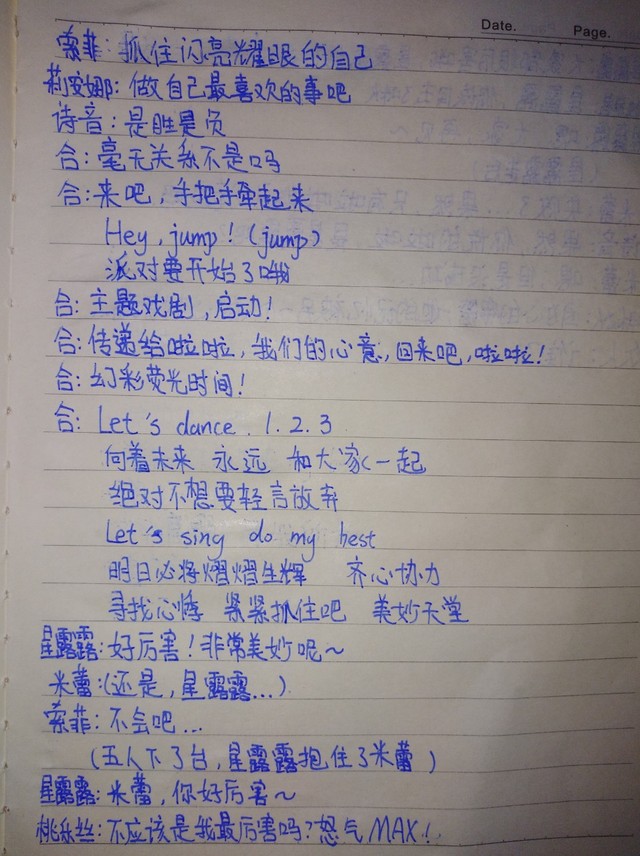 Date.    Page.
索菲：抓住闪亮耀眼的自己
莉安娜：做自己最喜欢的事吧
诗音：是胜是负
合：毫无关系不是吗
合：来吧，手把手牵起来
Hey，jump！(jump)
派对要开始了哦
合：主题戏剧，启动！
合：传递给啦啦，我们的心意，回来吧，啦啦！
合：幻彩荧光时间！
合：Let's dance．1．2．3
向着未来 永远 和大家一起
绝对不想要轻言放弃
Let's sing do my best
明日必将熠熠生辉 齐心协力
寻找心悸 紧紧抓住吧 美妙天堂
星露露：好厉害！非常美妙呢～
米蕾：(还是，星露露...)
索菲：不会吧...
(五人下了台，星露露抱住了米蕾)
星露露：米蕾，你好厉害～
桃乐丝：不应该是我最厉害吗？怒气MAX！